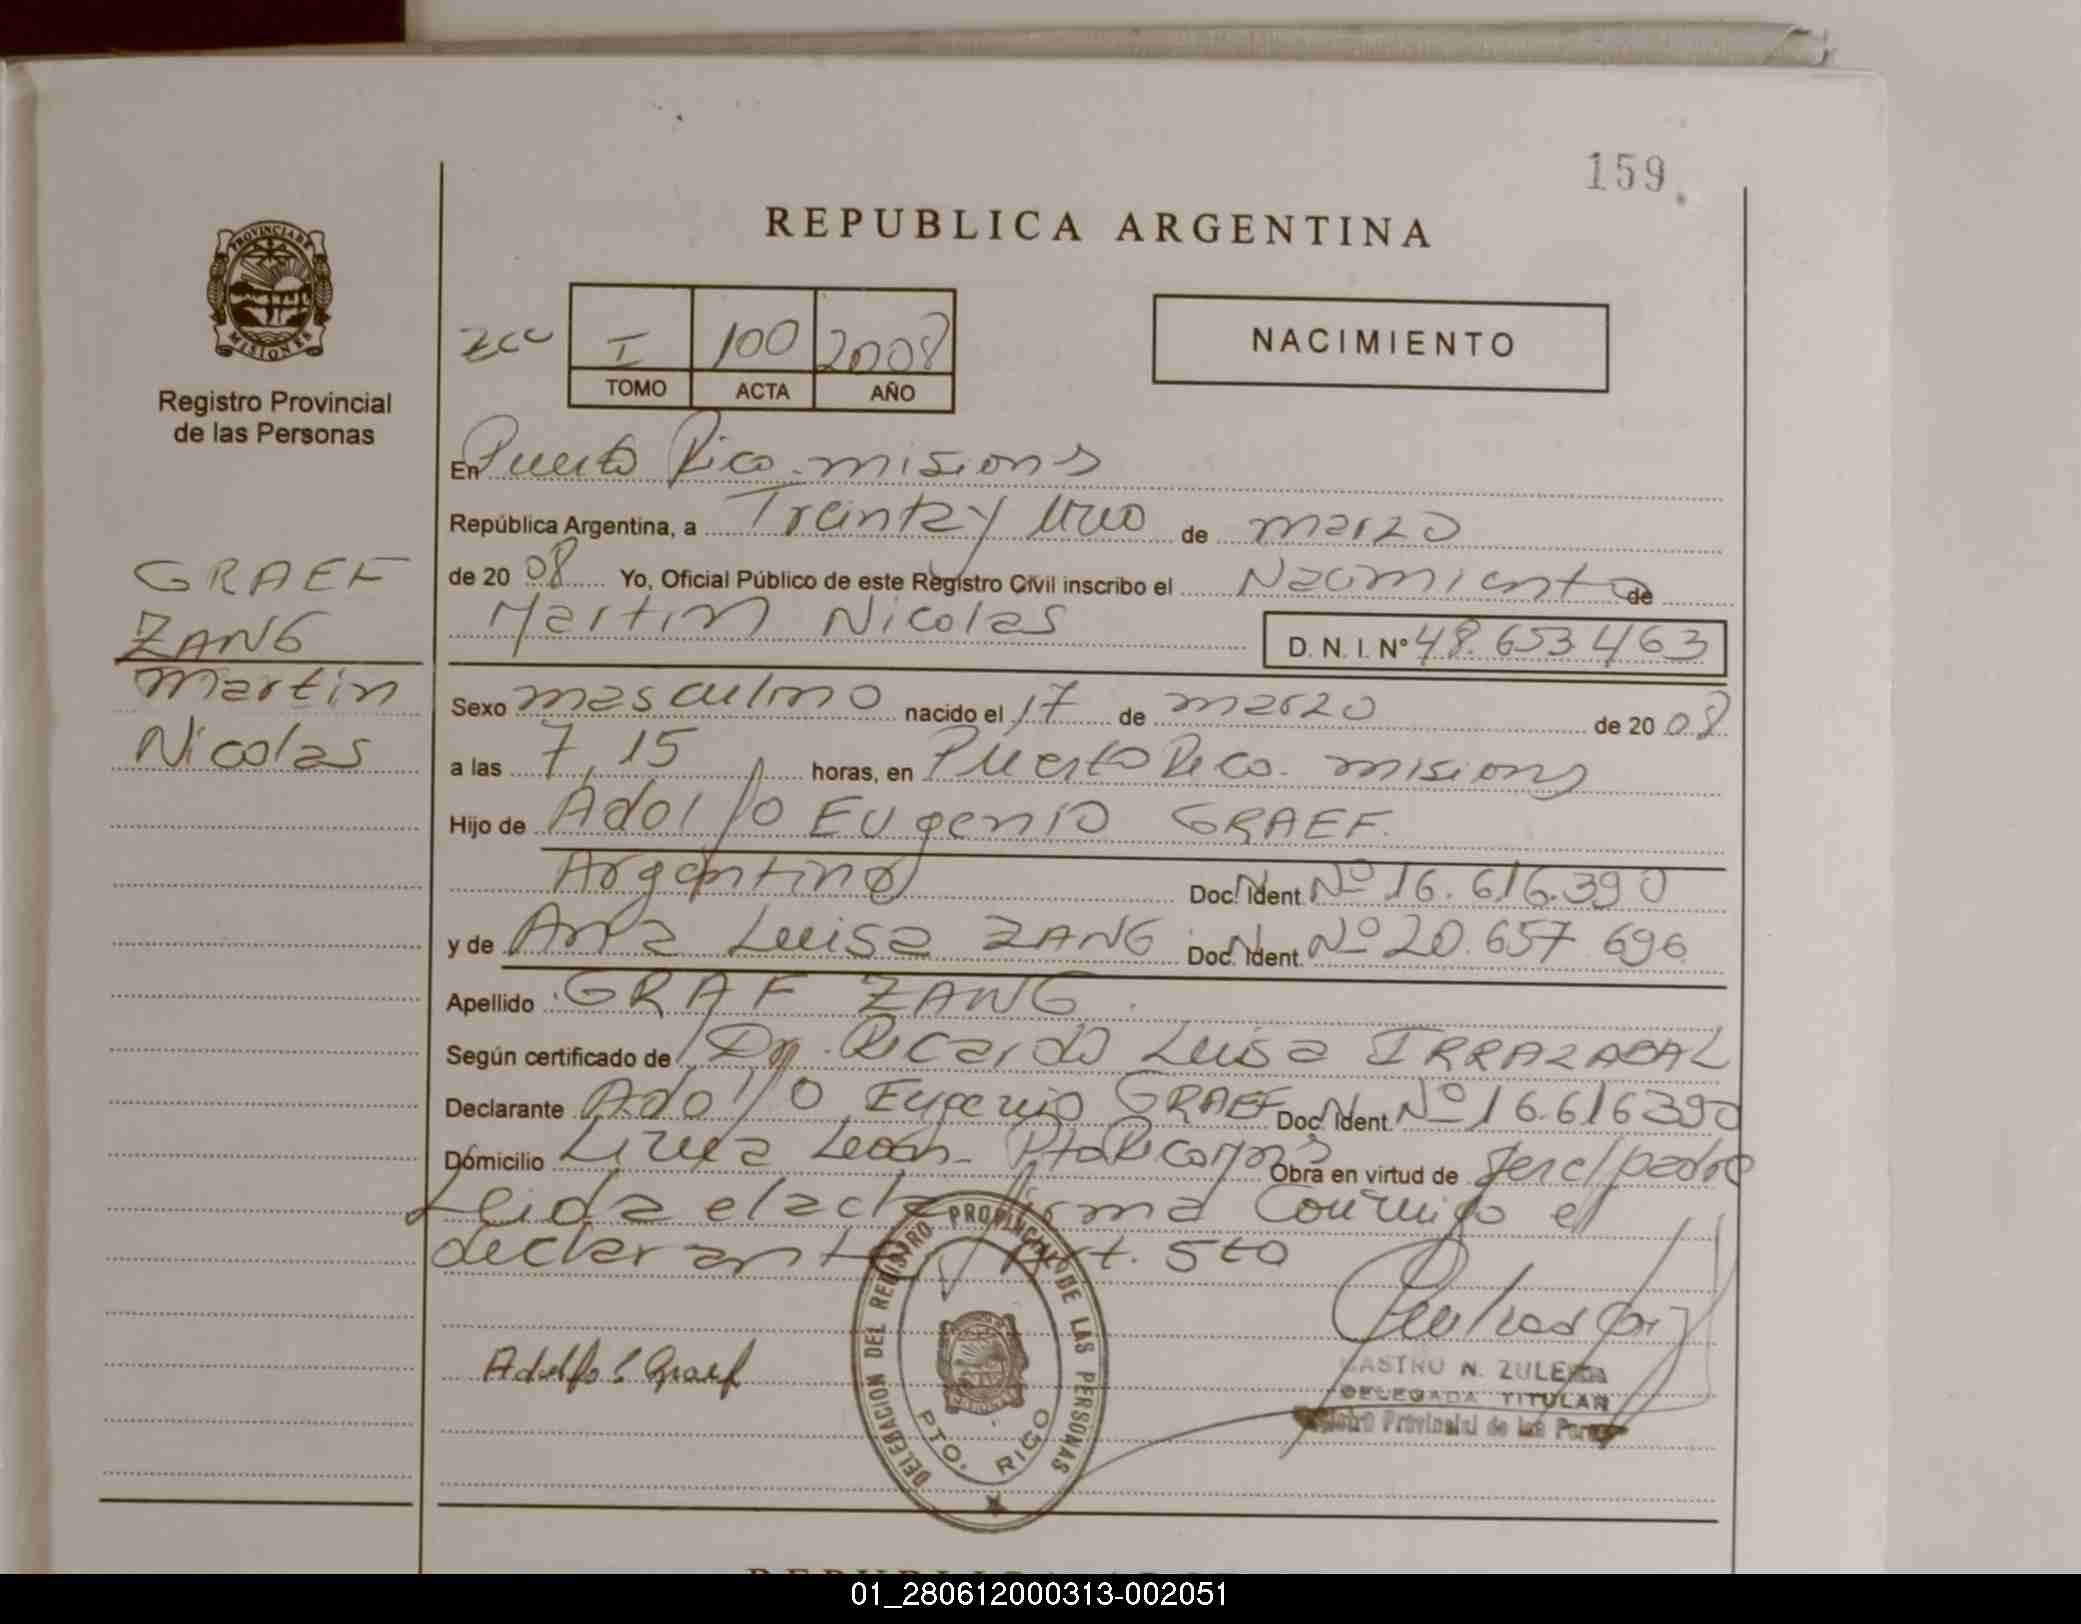 159.
REPUBLICA ARGENTINA
PROVINCIA DE
MISIONES
Registro Provincial
de las Personas
I 100 2008
TOMO ACTA AÑO
NACIMIENTO
GRAEF
ZANG
Martin
Nicolas
En Puerto Rico - misiones
República Argentina, a Treinta y Uno de marzo
de 20 08 Yo, Oficial Público de este Registro Civil inscribo el Nacimiento de
Martin Nicolas D. N. I. Nº 48.653.463
Sexo masculino nacido el 17 de marzo de 20 08
a las 7,15 horas, en Puerto Rico. misiones
Hijo de Adolfo Eugenio GRAEF.
Argentino Doc. Ident. Nº 16.616.390
y de Ana Luisa ZANG Doc. Ident. Nº 20.657.696
Apellido GRAF ZANG.
Según certificado de Dr. Ricardo Luisa IRRAZABAL
Declarante Adolfo Eugenio GRAEF Doc. Ident. Nº 16.616390
Domicilio Linea León - Pto Rico Obra en virtud de ser el padre
Leida el acta firma Conmigo el
declarante Art. 5to
Adolfo E Graef
DELEGACION DEL REGISTRO PROVINCIAL DE LAS PERSONAS
PTO. RICO
CASTRO N. ZULEMA
DELEGADA TITULAR
Registro Provincial de las Personas
REPUBLICA
01_280612000313-002051